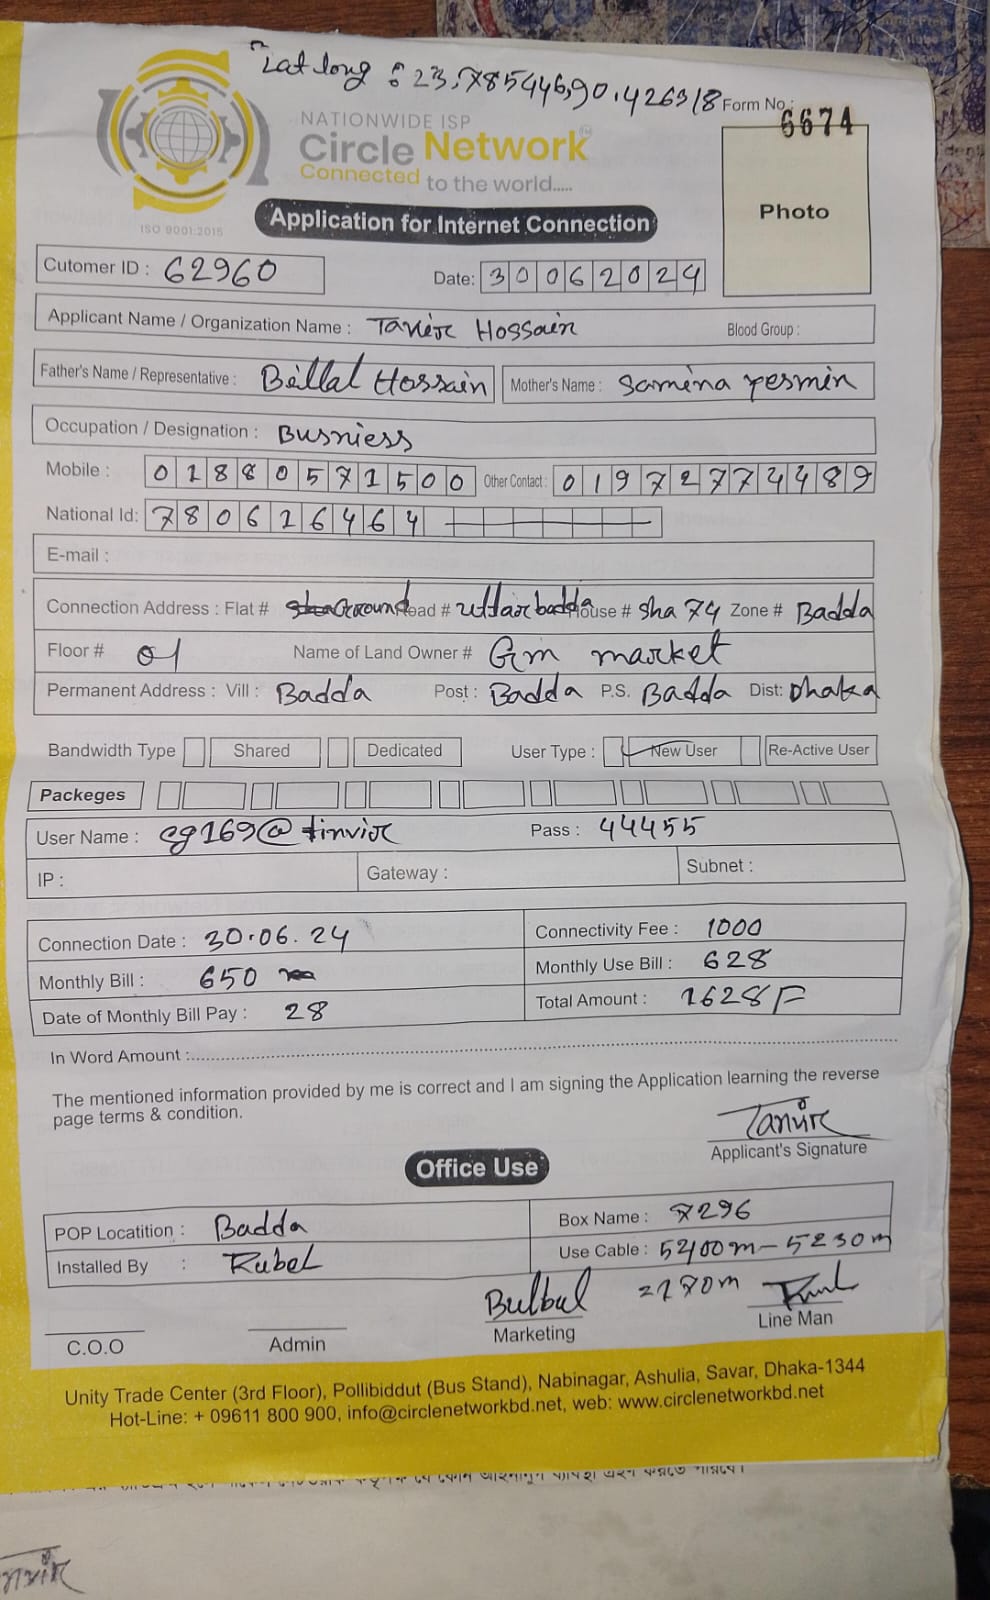 Lat long : 23.785446,90.426318
Form No.:
6674
NATIONWIDE ISP
Circle Network
Connected to the world.....
ISO 9001:2015
Photo
Application for Internet Connection
Cutomer ID : 62960
Date: 30062024
Applicant Name / Organization Name : Tanvir Hossain Blood Group :
Father's Name / Representative : Billal Hossain Mother's Name : Samina yesmin
Occupation / Designation : Busniess
Mobile : 01880571500 Other Contact : 01972774489
National Id: 780626464
E-mail :
Connection Address : Flat # Ground Road # uttar badda House # Sha 74 Zone # Badda
Floor # 01 Name of Land Owner # Gm market
Permanent Address : Vill : Badda Post : Badda P.S. Badda Dist: Dhaka
Bandwidth Type Shared Dedicated User Type : New User Re-Active User
Packeges
User Name : cg169@tinvir Pass : 44455
IP : Gateway : Subnet :
Connection Date : 30.06.24 Connectivity Fee : 1000
Monthly Bill : 650 Monthly Use Bill : 628
Date of Monthly Bill Pay : 28 Total Amount : 1628
In Word Amount :
The mentioned information provided by me is correct and I am signing the Application learning the reverse
page terms & condition.
Tanvir
Applicant's Signature
Office Use
POP Locatition : Badda Box Name : 7296
Installed By : Rubel Use Cable : 5400m-5230m
Bulbul =170m
C.O.O Admin Marketing Line Man
Unity Trade Center (3rd Floor), Pollibiddut (Bus Stand), Nabinagar, Ashulia, Savar, Dhaka-1344
Hot-Line: + 09611 800 900, info@circlenetworkbd.net, web: www.circlenetworkbd.net